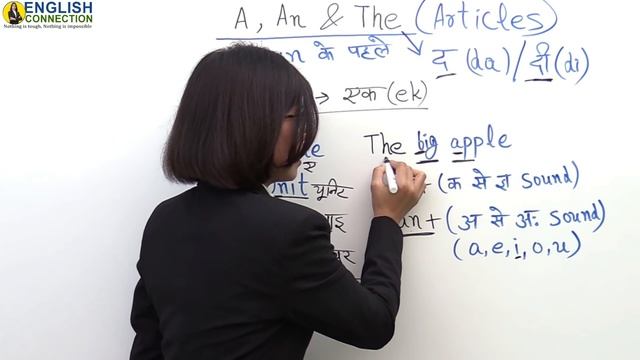 ENGLISH
CONNECTION
Nothing is tough, Nothing is impossible
A, An & The (Articles)
के पहले द (da) / दी (di)
→ एक (ek)
The big apple
unit यूनिट + (क से ज्ञ sound)
an + (अ से अः sound)
(a, e, i, o, u)